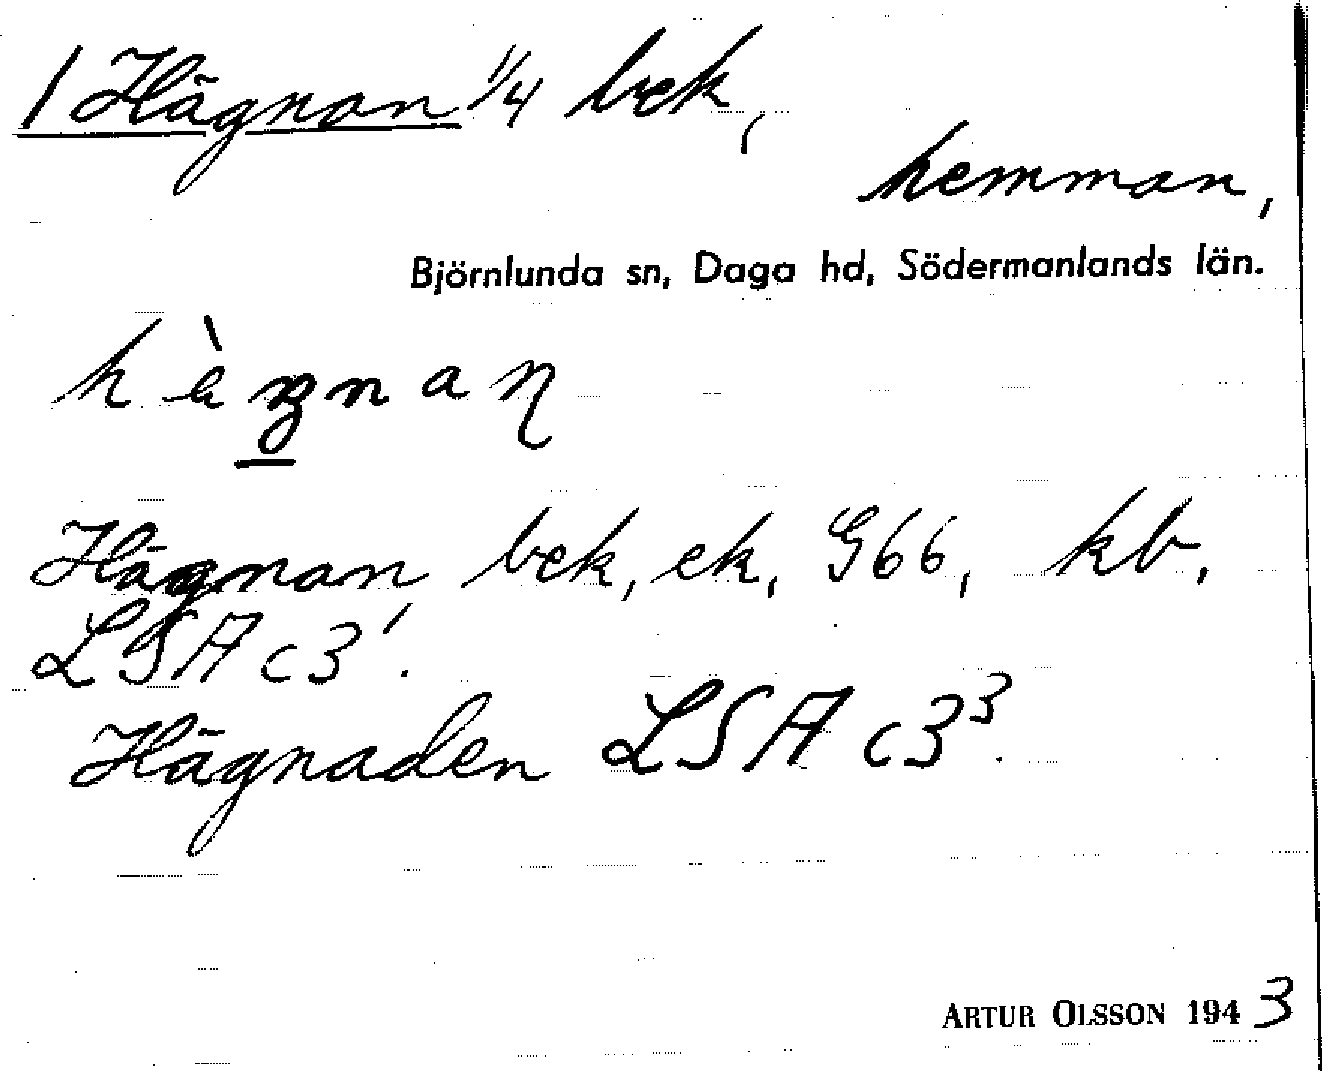 1 Hägnan 1/4 bek,
hemman,
Björnlunda sn, Daga hd, Södermanlands län.
hàŋnaɳ
Hägnan bek, ek, G66, kb,
LSA c3¹.
Hägnaden LSA c3³.
ARTUR OLSSON 1943